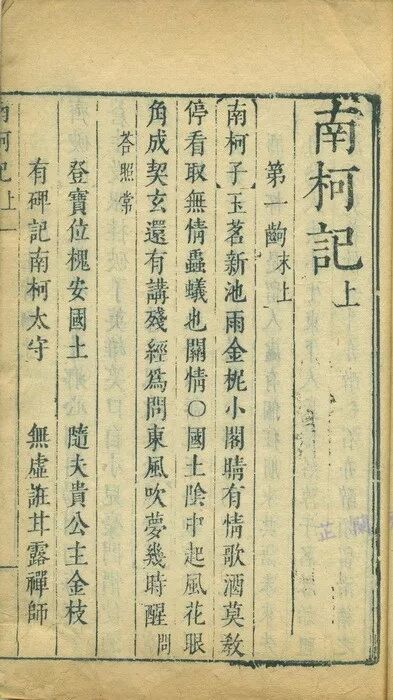 南柯記上
第一齣末上
南柯子玉茗新池雨金柅小閣晴有情歌酒莫教
停看取無情蟲蟻也關情○國土陰中起風花眼
角成契玄還有講殘經爲問東風吹夢幾時醒問
荅照常
登寶位槐安國土 隨夫貴公主金枝
有碑記南柯太守 無虛誑甘露禪師
南柯記上